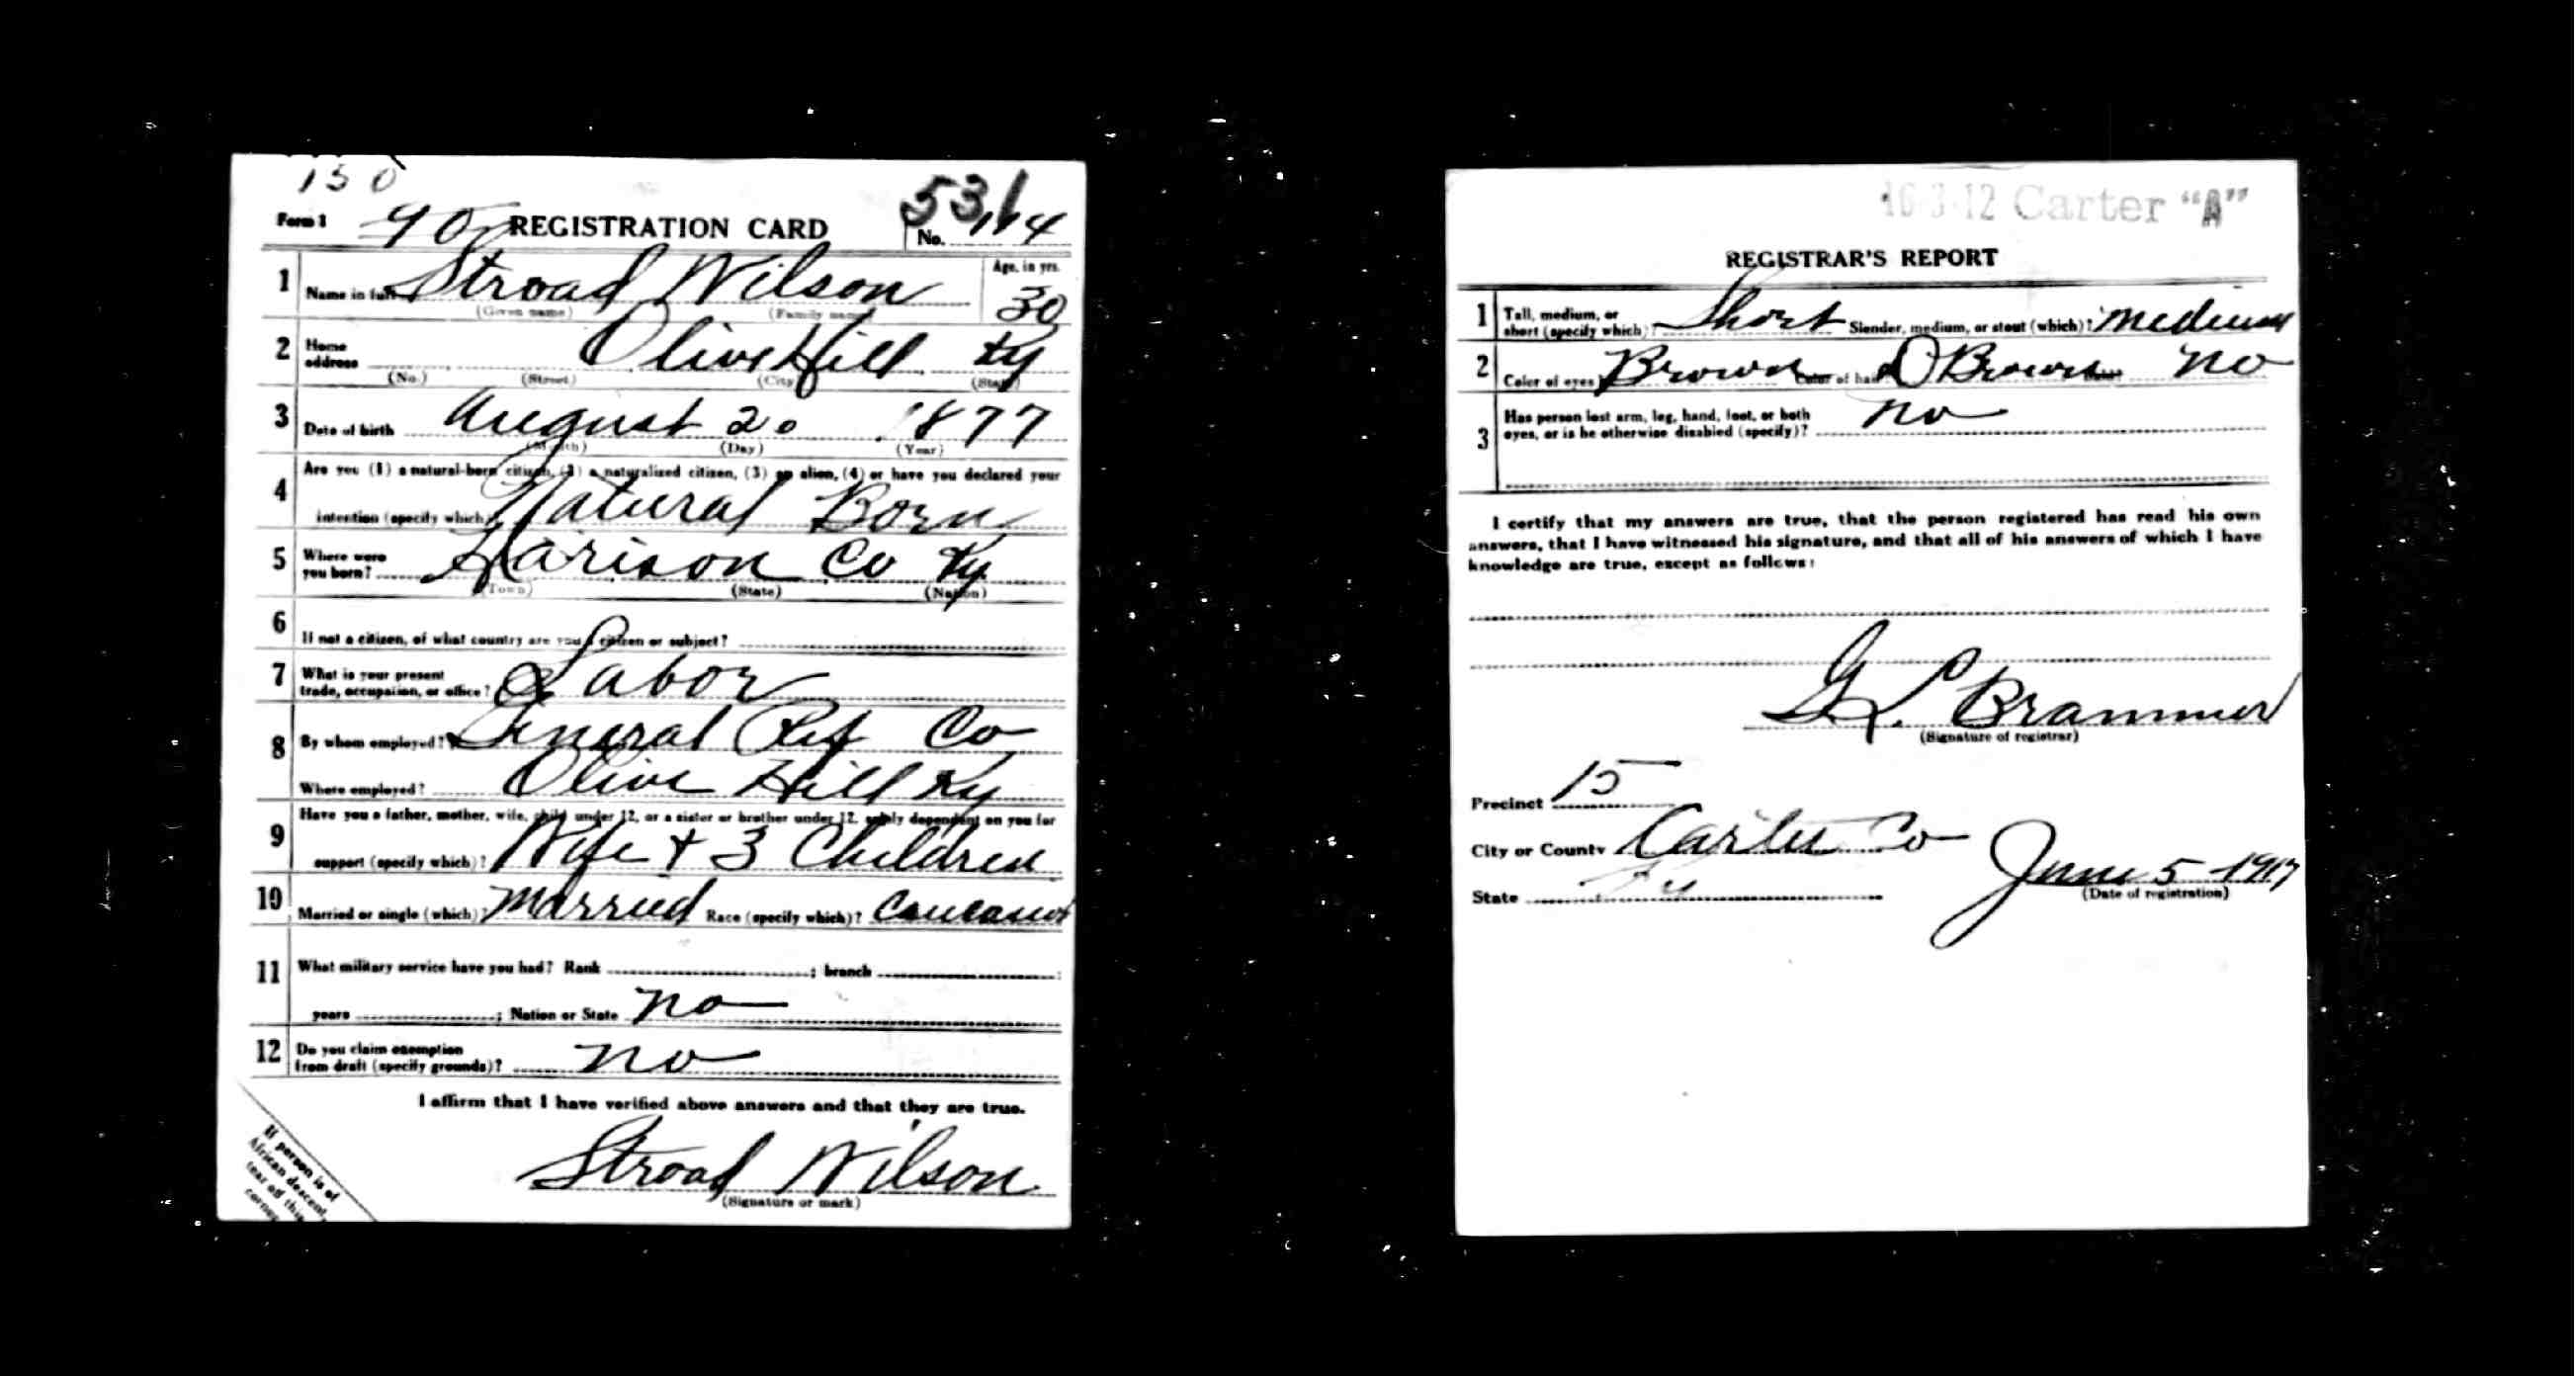 150
531
Form 1 90 REGISTRATION CARD No. 114
1 Name in full Stroad Wilson Age, in yrs. 30
(Given name) (Family name)
2 Home address Olive Hill Ky
(No.) (Street) (City) (State)
3 Date of birth August 20 1877
(Month) (Day) (Year)
4 Are you (1) a natural-born citizen, (2) a naturalized citizen, (3) an alien, (4) or have you declared your
intention (specify which)? Natural Born
5 Where were you born? Harison Co Ky
(Town) (State) (Nation)
6 If not a citizen, of what country are you a citizen or subject?
7 What is your present trade, occupation, or office? Labor
8 By whom employed? General Ref Co
Where employed? Olive Hill Ky
9 Have you a father, mother, wife, child under 12, or a sister or brother under 12, solely dependent on you for
support (specify which)? Wife + 3 Children
10 Married or single (which)? Married Race (specify which)?
11 What military service have you had? Rank ; branch ;
years ; Nation or State no
12 Do you claim exemption from draft (specify grounds)? no
I affirm that I have verified above answers and that they are true.
Stroad Wilson
(Signature or mark)
If person is of
African descent,
tear off this
corner
16-3-12 Carter "A"
REGISTRAR'S REPORT
1 Tall, medium, or short (specify which)? Short Slender, medium, or stout (which)? medium
2 Color of eyes Brown Color of hair D Brown no
3 Has person lost arm, leg, hand, foot, or both
eyes, or is he otherwise disabled (specify)? no
I certify that my answers are true, that the person registered has read his own
answers, that I have witnessed his signature, and that all of his answers of which I have
knowledge are true, except as follows:
G L Brammer
(Signature of registrar)
Precinct 15
City or County Carter Co
State Ky
June 5 1917
(Date of registration)